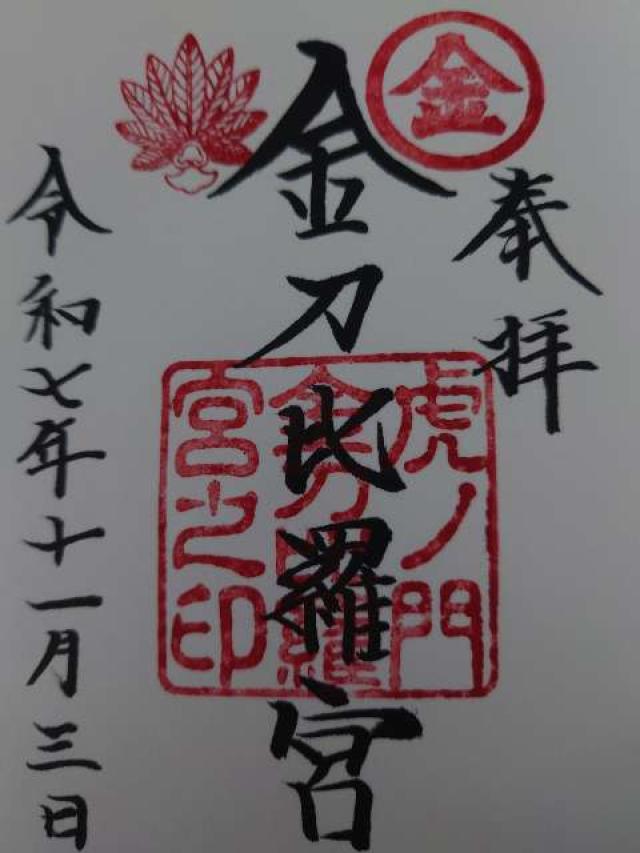 金
奉拝
金刀比羅宮
虎ノ門
金刀比羅
宮之印
令和七年十一月三日